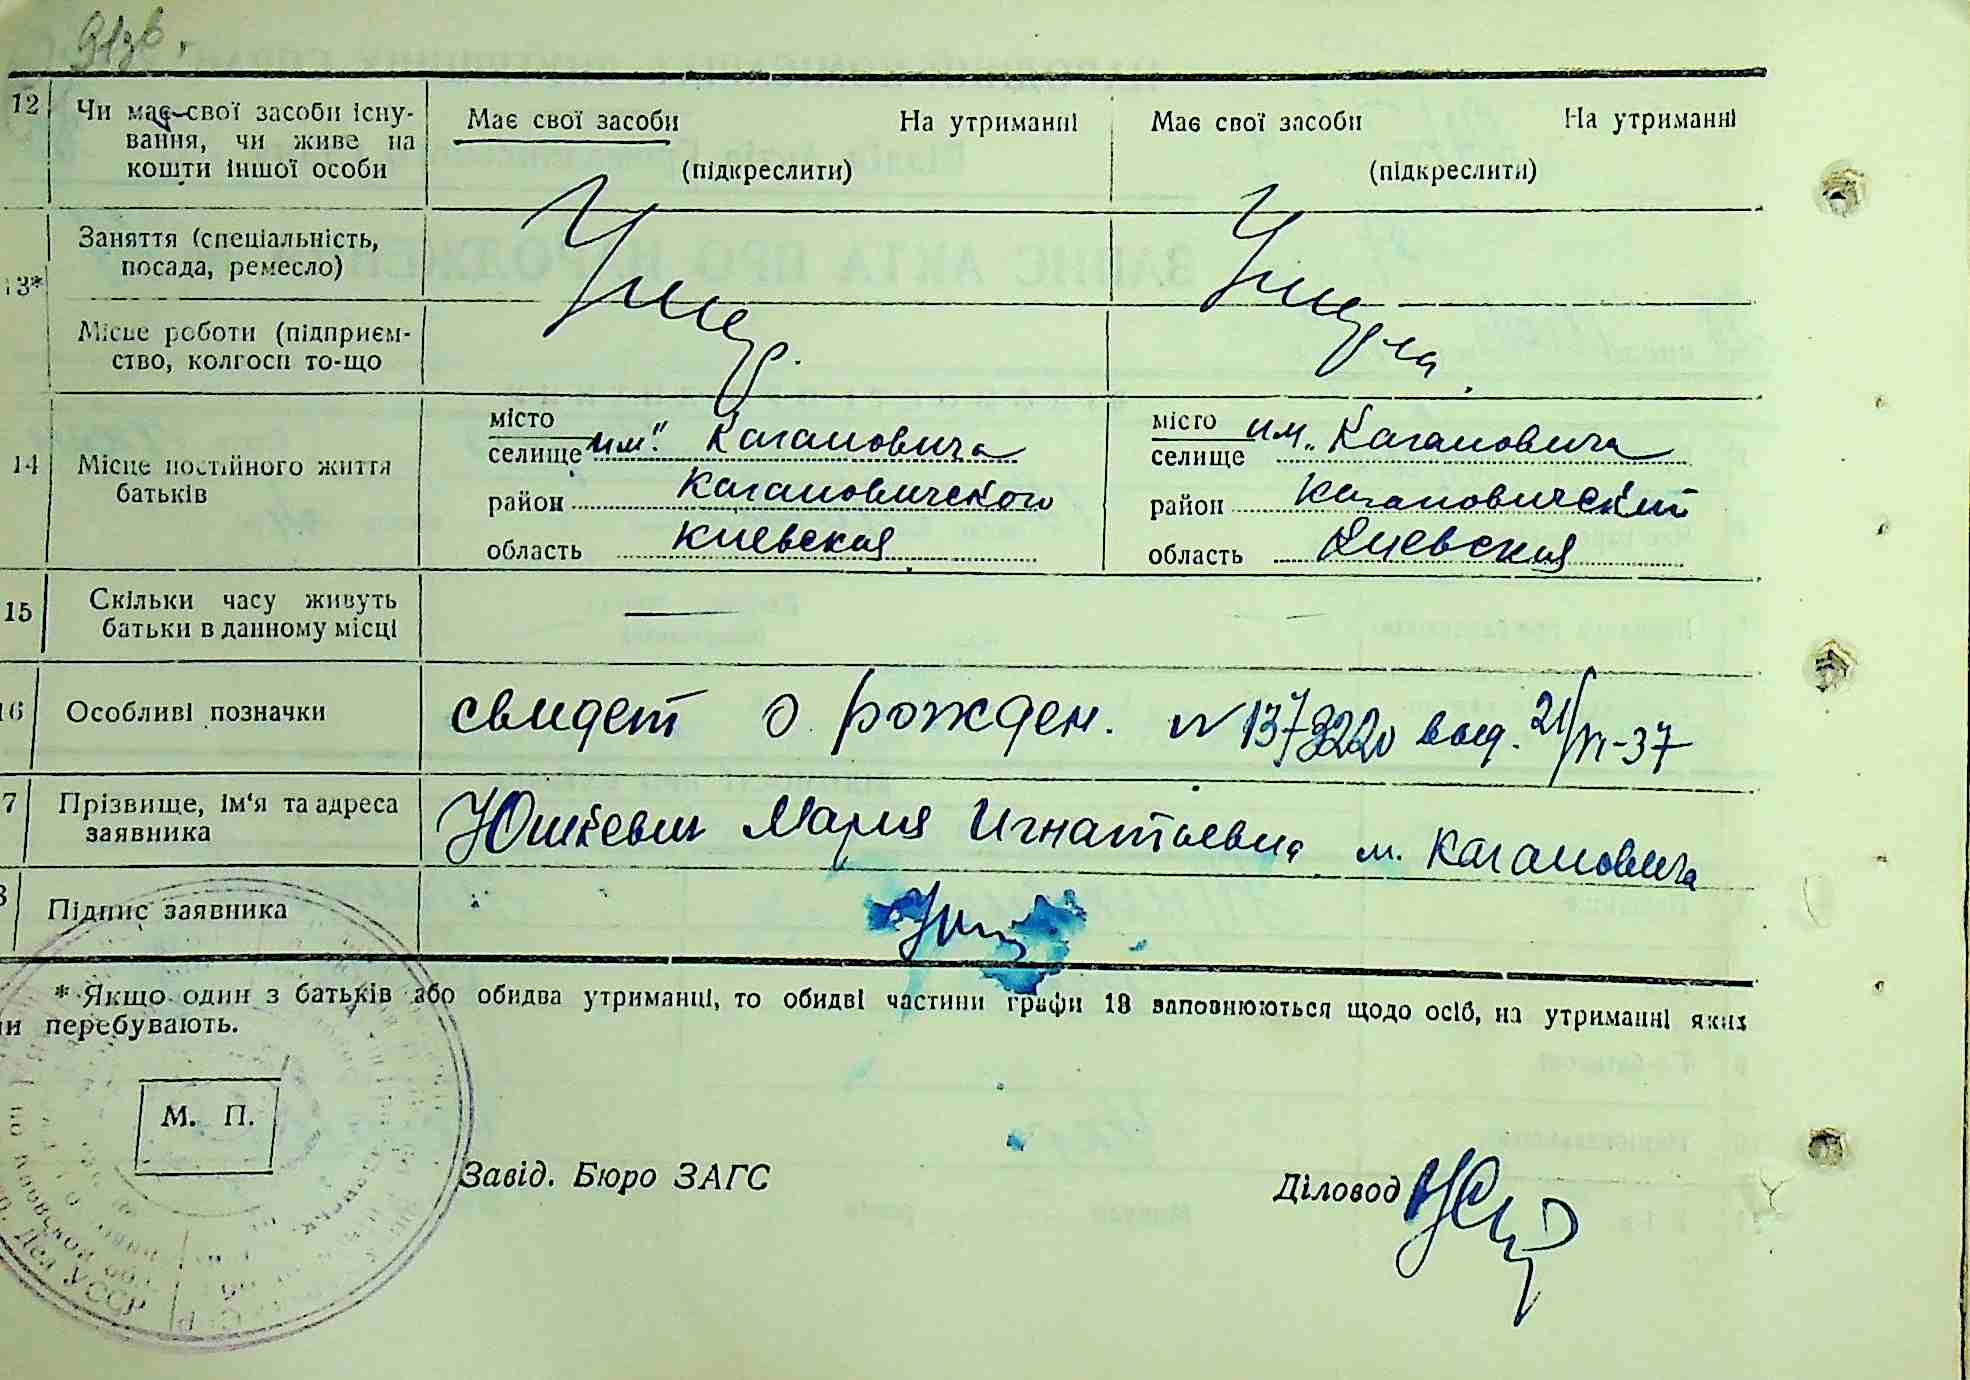 12 Чи має свої засоби існу-
вання, чи живе на
кошти іншої особи
Має свої засоби На утриманні
(підкреслити)
Має свої засоби На утриманні
(підкреслити)
13* Заняття (спеціальність,
посада, ремесло)
Місце роботи (підприєм-
ство, колгосп то-що
14 Місце постійного життя
батьків
місто
селище им. Кагановича
район Кагановического
область Киевская
місто
селище им. Кагановича
район Кагановический
область Киевская
15 Скільки часу живуть
батьки в данному місці
—
16 Особливі позначки
свидет о рожден. № выд. 21/VI-37
7 Прізвище, ім'я та адреса
заявника
Юшкевич Мария Игнатьевна м. Кагановича
8 Підпис заявника
* Якщо один з батьків або обидва утриманці, то обидві частини графи 13 заповнюються щодо осіб, на утриманні яких
ни перебувають.
М. П.
Завід. Бюро ЗАГС
Діловод